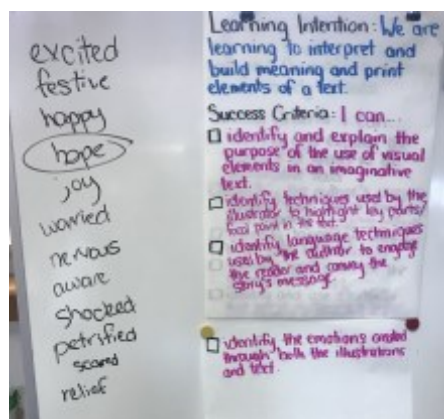 excited
festive
happy
hope
joy
worried
nervous
aware
shocked
petrified
scared
relief
Learning Intention: We are
learning to interpret and
build meaning and print
elements of a text.
Success Criteria: I can...
identify and explain the
purpose of the use of visual
elements in an imaginative
text.
identify techniques used by the
illustrator to highlight key parts/
focal point in the text.
identify language techniques
used by the author to engage
the reader and convey the
story's message.
identify the emotions created
through both the illustrations
and text.